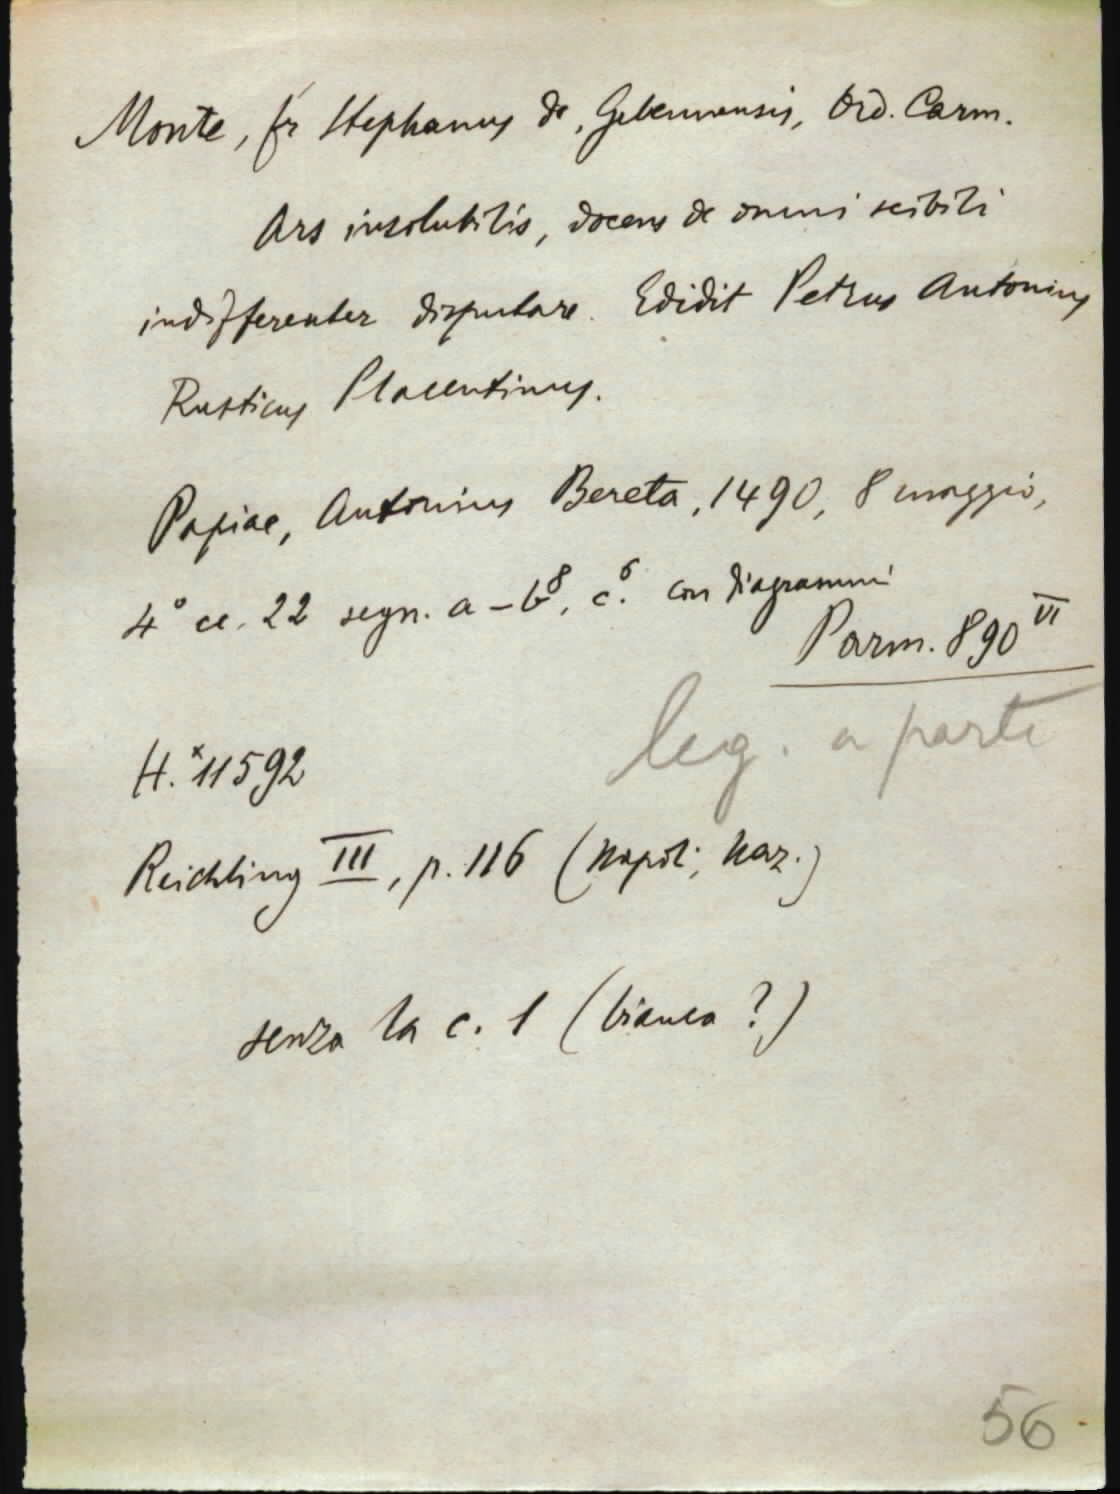 Monte, fr Stephanus de, Gebennensis, Ord. Carm.
Ars insolubilis, docens de omni scibili
indifferenter disputare. Edidit Petrus Antonius
Rusticus Placentinus.
Papiae, Antonius Bereta, 1490, 8 maggio,
4° cc. 22 segn. a-b⁸, c⁶. con diagrammi
Parm. 890 VI
leg. a parte
H.*11592
Reichling III, p. 116 (Napoli, Naz.)
senza la c. 1 (bianca?)
56